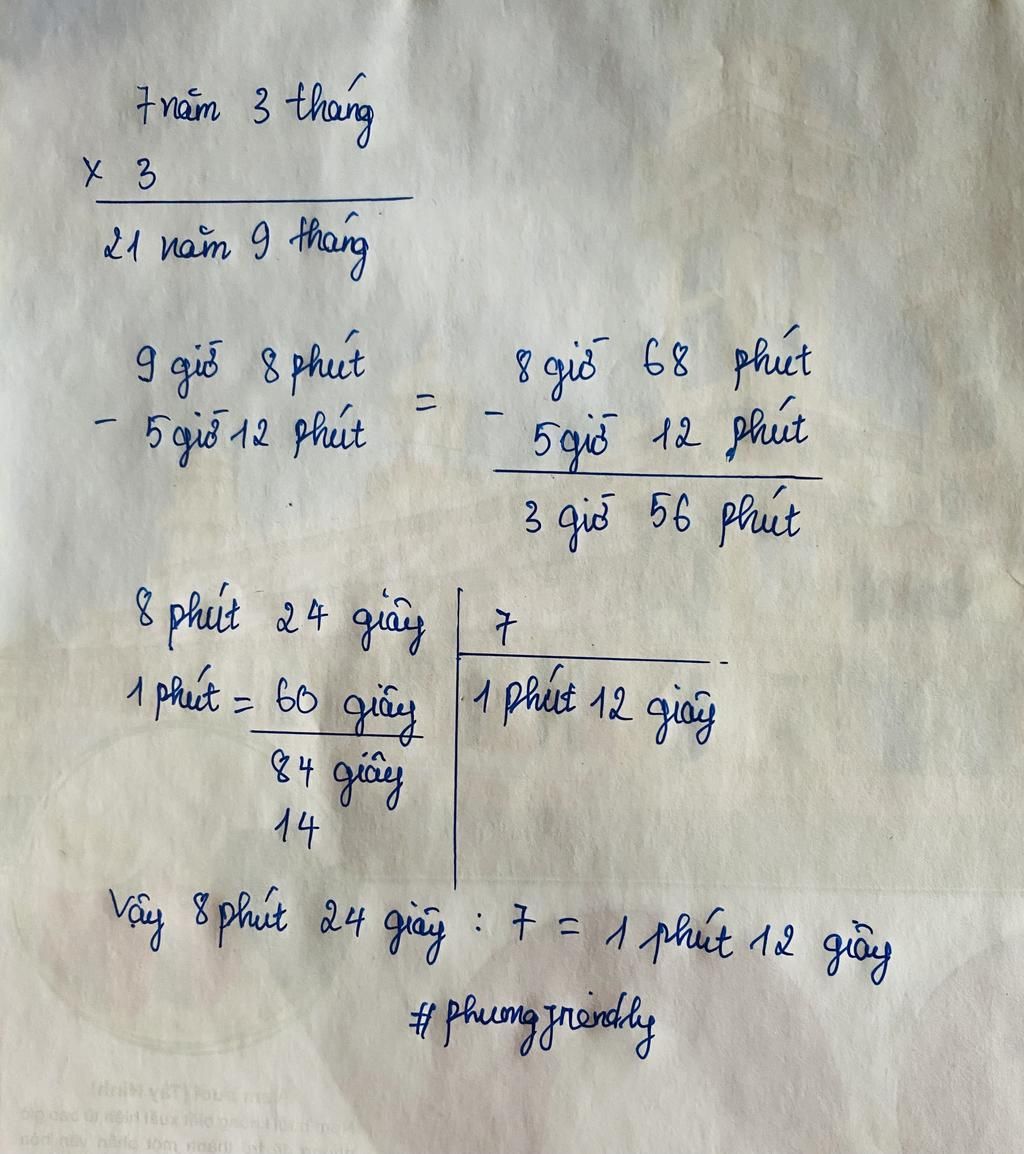 7 năm 3 tháng
x 3
21 năm 9 tháng
9 giờ 8 phút
- 5 giờ 12 phút
=
8 giờ 68 phút
- 5 giờ 12 phút
3 giờ 56 phút
8 phút 24 giây
7
1 phút = 60 giây
1 phút 12 giây
84 giây
14
Vậy 8 phút 24 giây : 7 = 1 phút 12 giây